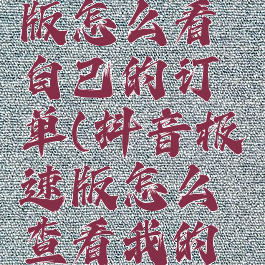 版怎么看
自己的订
单(抖音极
速版怎么
查看我的